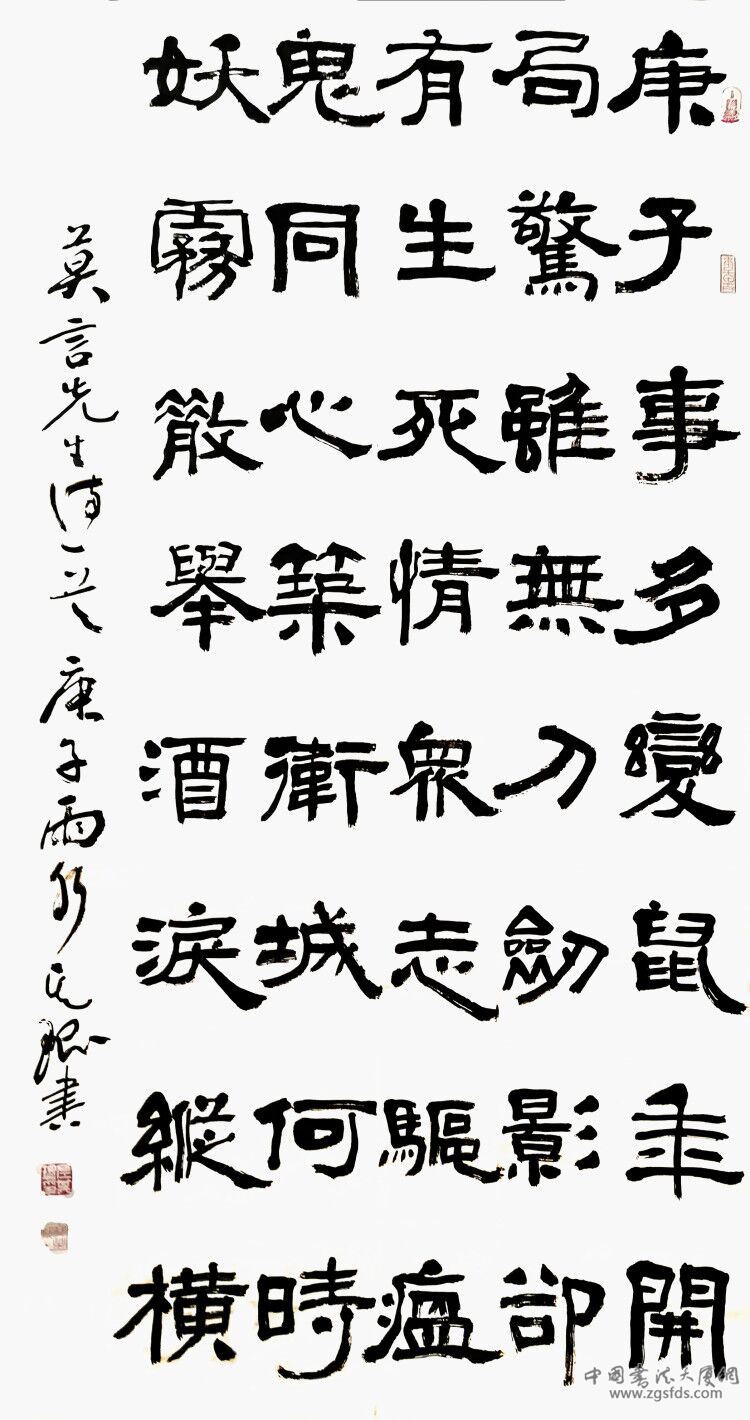 庚子事多變鼠年開
局驚雖無刀劒影卻
有生死情眾志驅瘟
鬼同心築衛城何時
妖霧散舉酒淚縱橫
莫言先生詩一首庚子雨水
書
中国书法大厦網
www.zgsfds.com